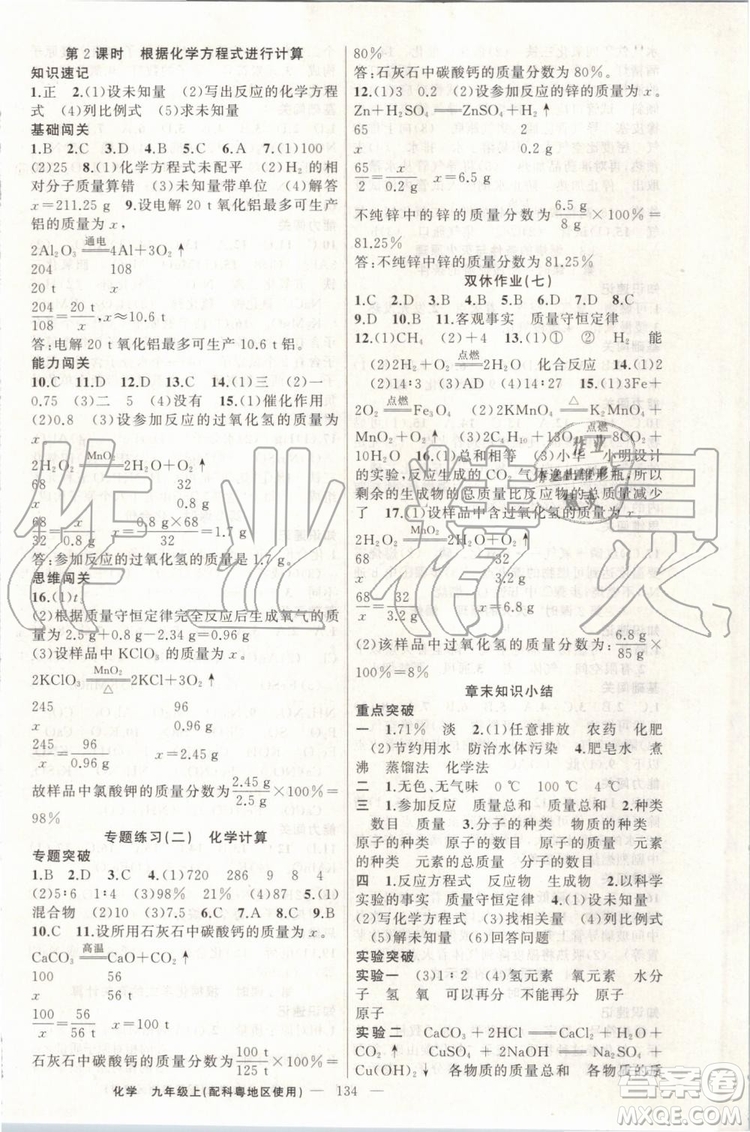 第2课时 根据化学方程式进行计算
知识速记
1.正 2.(1)设未知量 (2)写出反应的化学方程
式 (4)列比例式 (5)求未知量
基础闯关
1.B 2.D 3.B 4.C 5.B 6.A 7.(1)100
(2)25 8.(1)化学方程式未配平 (2)氧化镁的相
对分子质量算错 (3)未知量带单位 (4)解答
x=211.25 g 9.设电解 20 t 氧化铝最多可生产
铝的质量为 x,
2Al₂O₃ 通电 4Al+3O₂↑
204 108
20 t x
204/108=20 t/x x≈10.6 t
答:电解 20 t 氧化铝最多可生产 10.6 t 铝。
能力闯关
10.C 11.D 12.D 13.C 14.(1)三 (2)一
0.01x (3)二 5 没有 15.(1)催化作用
(2)0.8 (3)设参加反应的过氧化氢的质量为
x
2H₂O₂ MnO₂ 2H₂O+O₂↑
68 32
x 0.8
68/32=x/0.8 x=0.8 g×68/32=1.7 g
答:参加反应的过氧化氢的质量是 1.7 g。
思维闯关
16.(1)t₃
(2)根据质量守恒定律完全反应后生成氧气的质量为
2.5 g+0.8 g-2.34 g=0.96 g
(3)设样品中 KClO₃ 的质量为 x。
2KClO₃ MnO₂ △ 2KCl+3O₂↑
245 96
x 0.96 g
245/x=96/0.96 g x=2.45 g
故样品中氯酸钾的质量分数为 2.45 g/2.5 g×100%=
98%
专题练习(二) 化学计算
专题突破
1.B 2.D 3.C 4.(1)720 286 9 8 4
(2)5:6 1:4 (3)98% 21% 5.(1)
混合物 (2)0.4 6.D 7.C 8.A 9.B
10.C 11.设所用石灰石中碳酸钙的质量为 x。
CaCO₃ 高温 CaO+CO₂↑
100 56
x 56 t
100/x=56/56 t x=100 t
石灰石中碳酸钙的质量分数为 100 t/125 t×100%=
80%
答:石灰石中碳酸钙的质量分数为 80%。
12.(1)3 0.2 (2)设参加反应的锌的质量为 x。
Zn+H₂SO₄═ZnSO₄+H₂↑
65 2
x 0.2 g
65/x=2/0.2 g x=6.5 g
不纯锌中的锌的质量分数为 6.5 g/8 g×100%=
81.25%
答:不纯锌中的锌的质量分数为 81.25%
双休作业(七)
1.C 2.B 3.A 4.D 5.D 6.B 7.C 8.C
9.D 10.B 11.客观事实 质量守恒定律
12.(1)4 (2)4 13.(1)① ② H 能
(2)2H₂+O₂ 点燃 2H₂O 化合反应 14.(1)2
(2)14:3 (3)D (4)14:27 15.(1)3Fe+
2O₂ 点燃 Fe₃O₄ (2)2KMnO₄ △ K₂MnO₄+
MnO₂+O₂↑ (3)2C₄H₁₀+13O₂ 点燃 8CO₂+
10H₂O 16.(1)总和相等 (2)小华 小明设计
的实验,反应生成的 CO₂ 气体逸出锥形瓶,所以
剩余的生成物的总质量比反应物的总质量减少
了 17.(1)设样品中含过氧化氢的质量为 x。
2H₂O₂ MnO₂ 2H₂O+O₂↑
68 32
x 3.2 g
68/x=32/3.2 g x=6.8 g
(2)该样品中过氧化氢的质量分数为 6.8 g/85 g×
100%=8%
章末知识小结
重点突破
一 1.71% 淡 2.(1)任意排放 农药 化肥
(2)节约用水 防治水体污染 4.肥皂水 煮
沸 蒸馏法 化学法
二 1.无色、无气味 0 ℃ 100 ℃ 4 ℃
三 1.参加反应 质量总和 质量总和 2.种类
数目 质量 3.分子的种类 物质的种类
原子的种类 原子的数目 原子的质量 元素
的种类 元素的总质量 分子的数目
四 1.反应方程式 反应物 生成物 2.以科学
实验的事实 质量守恒定律 5.(1)设未知量
(2)化学方程式 (3)找相关量 (4)列比例式
(5)解未知量 (6)回答问题
实验突破
实验一 (3)1:2 (4)氢元素 氧元素 水分
子 氢 氧 可以再分 不能再分 原子
原子
实验二 CaCO₃+2HCl═CaCl₂+H₂O+
CO₂↑ CuSO₄+2NaOH═Na₂SO₄+
Cu(OH)₂↓ 质量总和 质量总和
化学 九年级上(配科粤地区使用) — 134 —
作业精灵
MXQE.COM